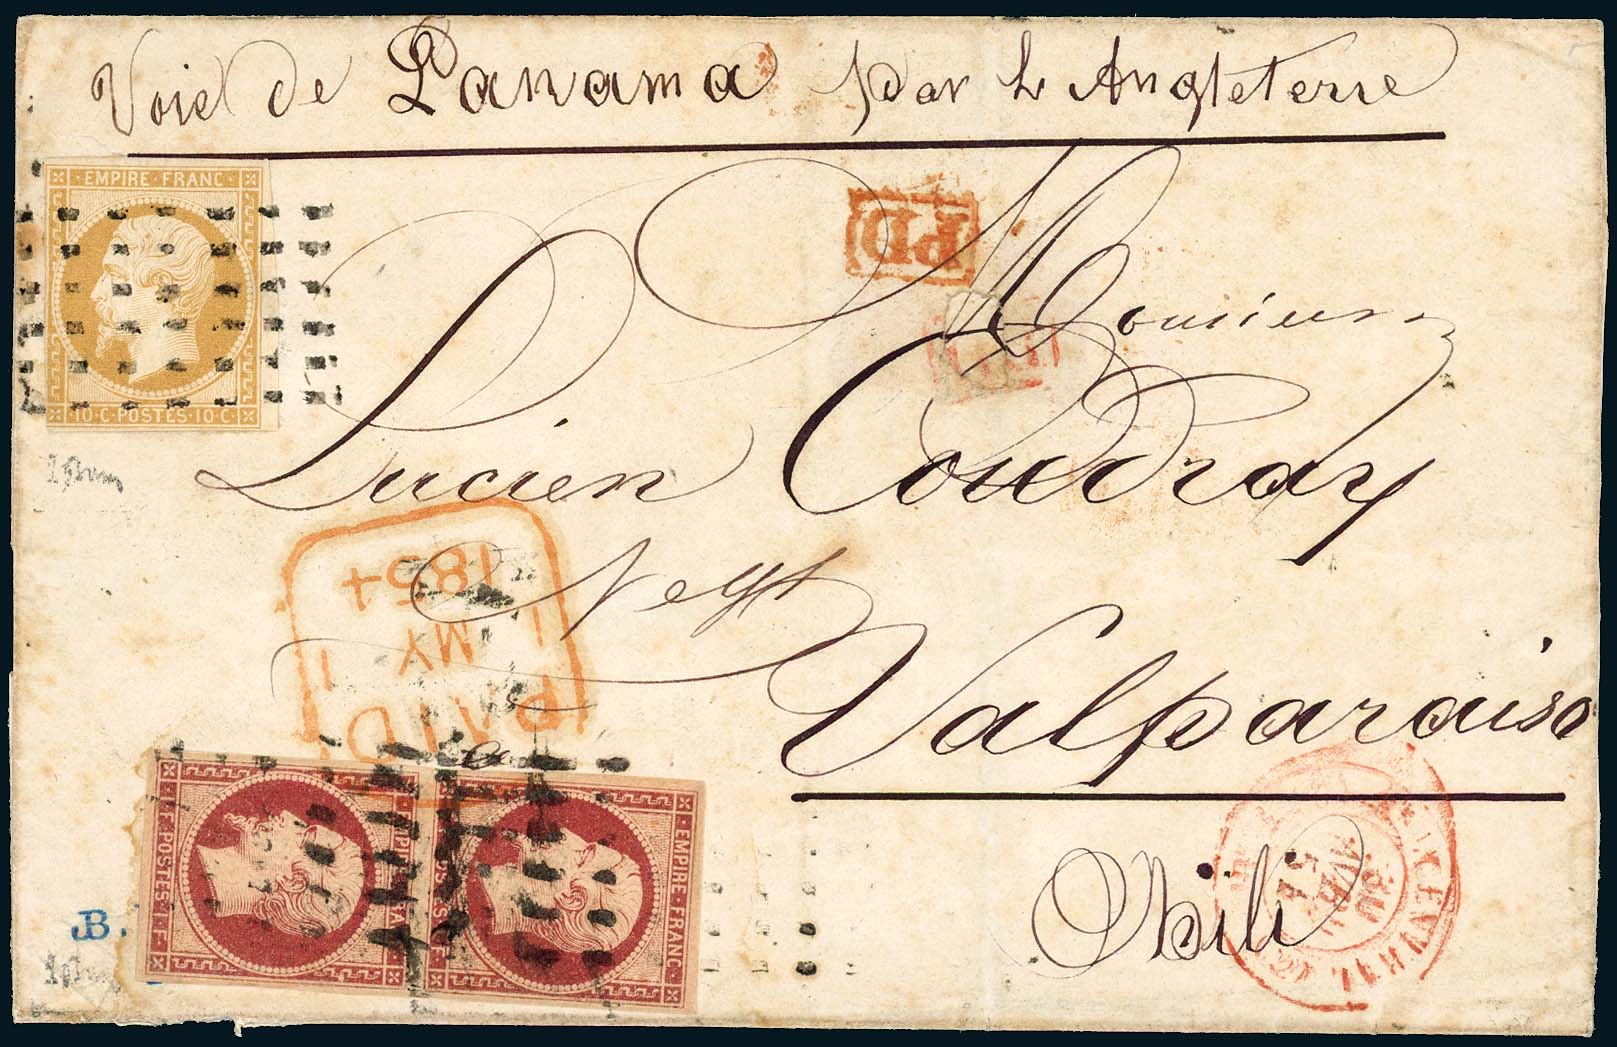 Voie de Panama par l'Angleterre
EMPIRE·FRANC·
10·C·POSTES·10·C·
PD
Monsieur
Lucien Coudray
Negt
1854
MY 1
PAID
a
Valparaiso
Chili
30
AVRIL
54
B.
EMPIRE·FRANC·
POSTES·1·F·
EMPIRE·FRANC·